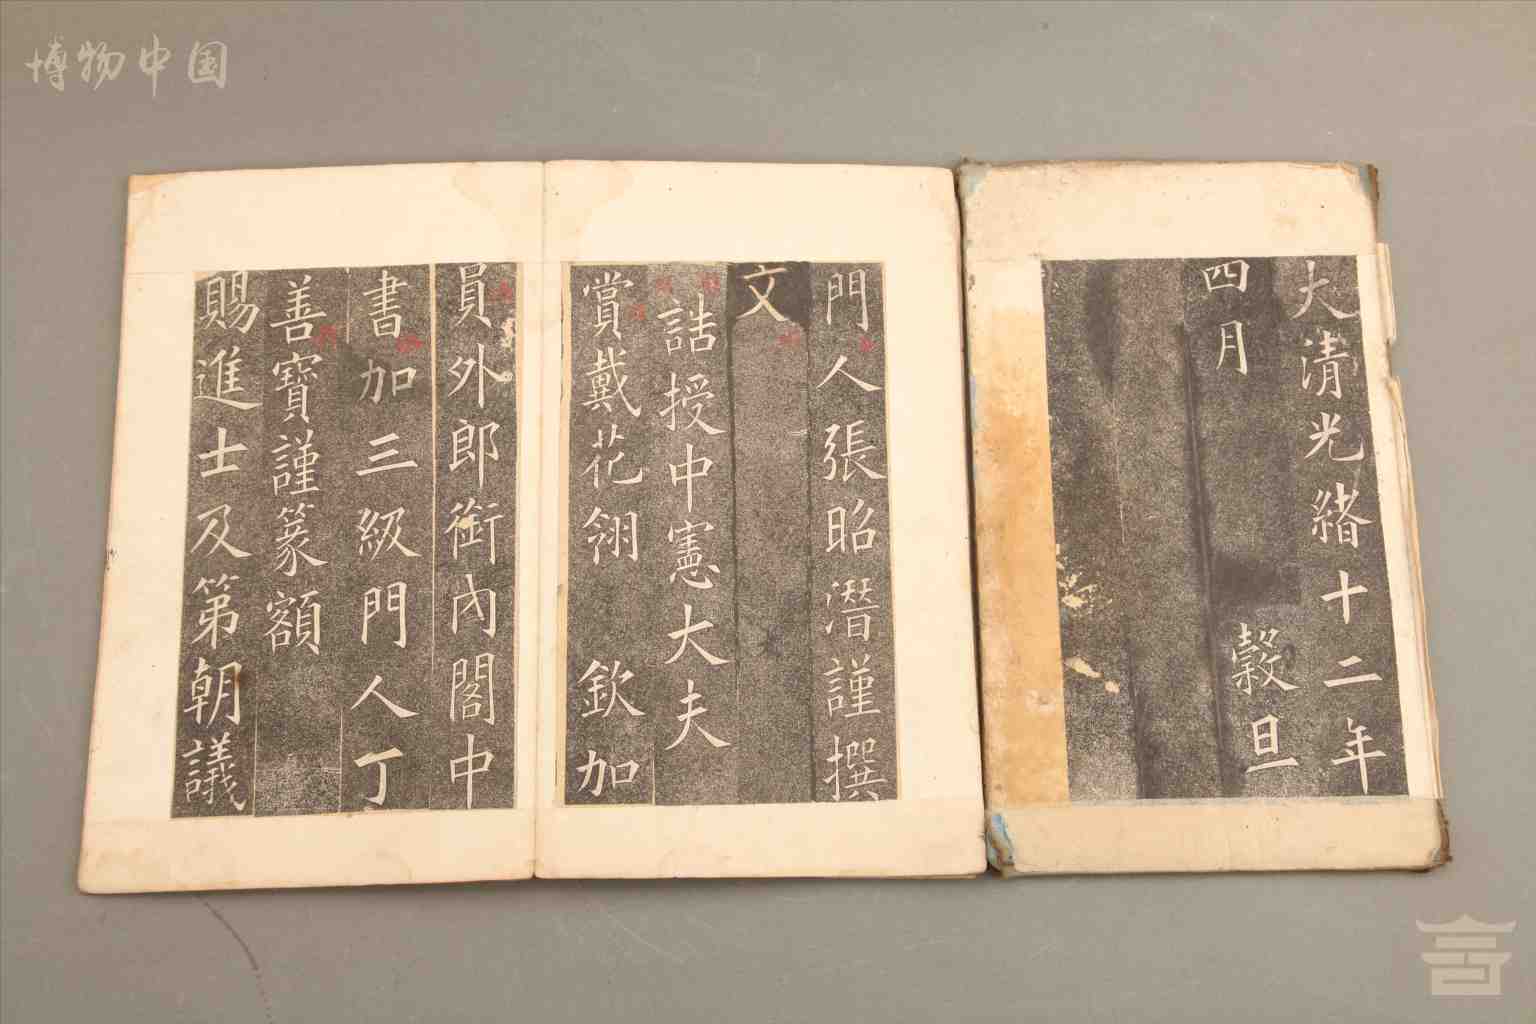 博物中国
大清光緒十二年
四月 穀旦
門人張昭潛謹撰
文
誥授中憲大夫
賞戴花翎 欽加
員外郎銜內閣中
書加三級門人丁
善寶謹篆額
賜進士及第朝議